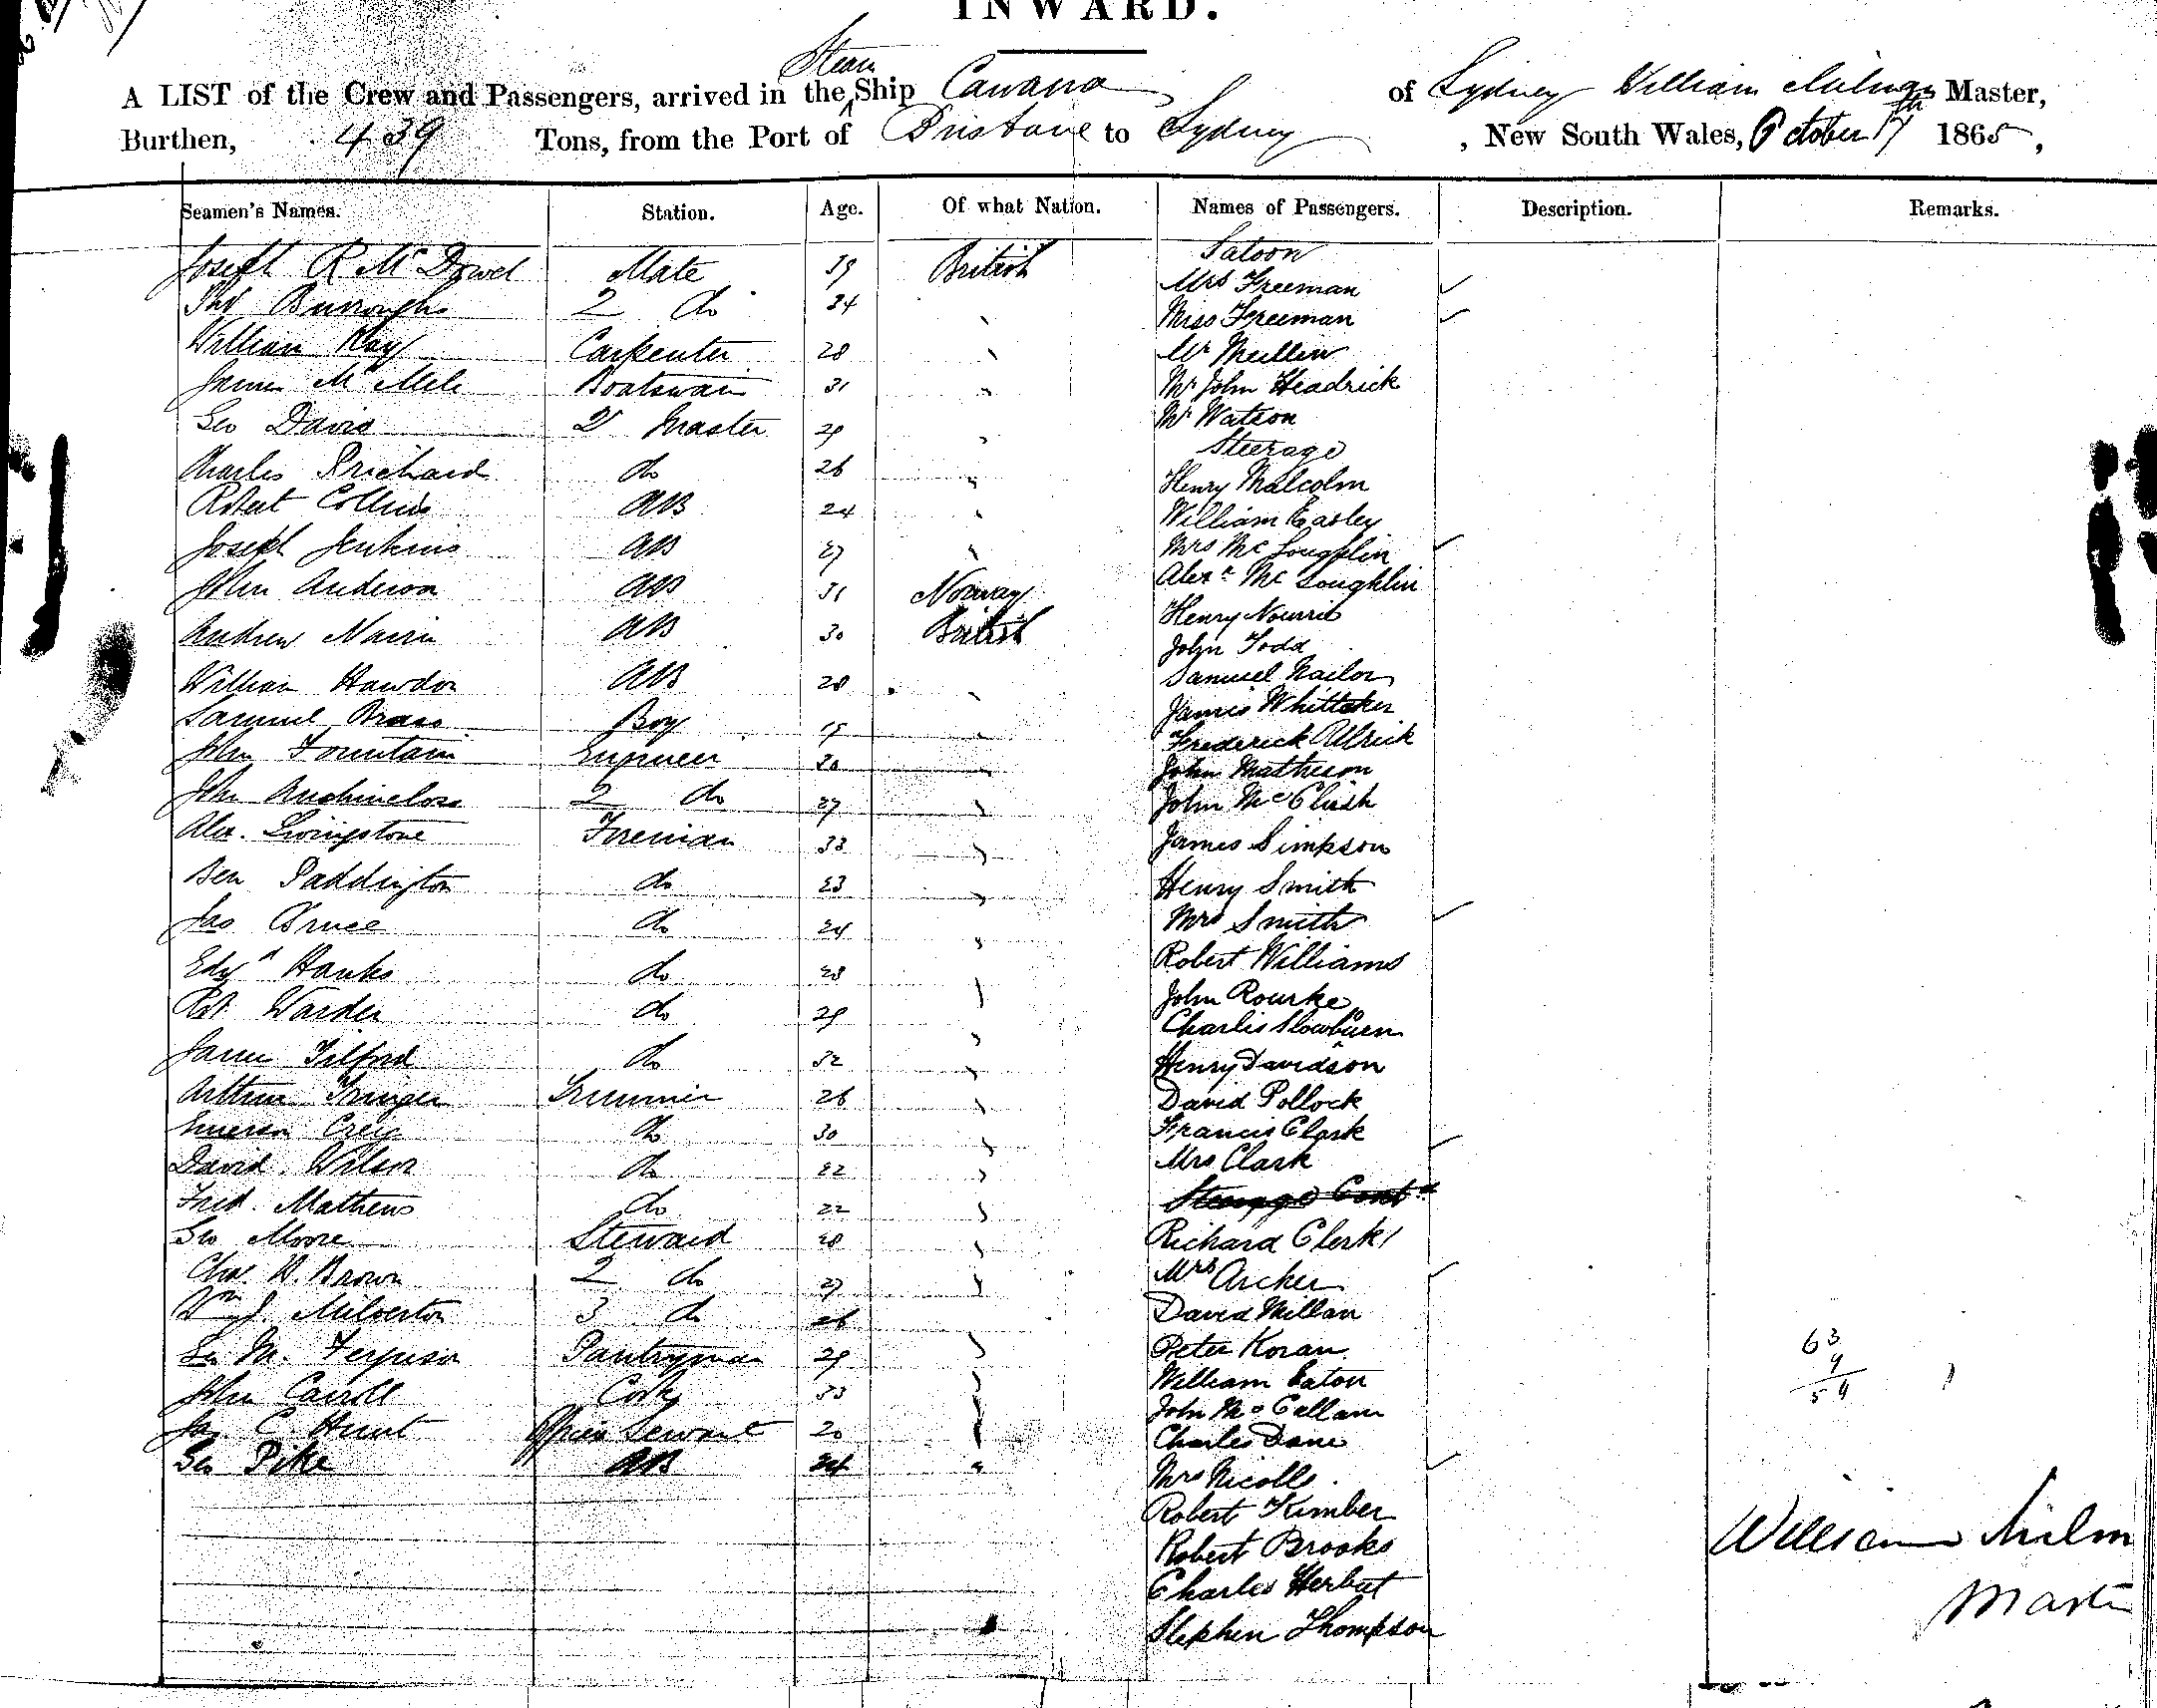 INWARD.
A LIST of the Crew and Passengers, arrived in the Steam Ship Cawarra of Sydney William Milman Master,
Burthen, 439 Tons, from the Port of Brisbane to Sydney, New South Wales, October 17th 1865,
Seamen's Names. Station. Age. Of what Nation. Names of Passengers. Description. Remarks.
Saloon
Joseph R McDowel Mate 39 British Mrs Freeman
Thos Burroughs 2 do 34 Miss Freeman
William Kay Carpenter 28 Mr Mullin
James Boatswain 31 Mr John Headrick
Geo Davis 2r Master 29 Mr Watson
Steerage
Charles Prichard do 26 Henry Malcolm
Robert Collins AB 24 William Easley
Joseph Jenkins AB 27 Mrs McLoughlin
John Anderson AB 31 Norway Alexr McLoughlin
Andrew Nairn AB 30 British Henry Nourrie
John Todd
William Hawdon AB 28 Samuel Nailor
Samuel Brass Boy 19 James Whittaker
Frederick Ulrick
John Fountain Engineer 30 John Matheson
John Auchincloss 2 do 27 John McClish
Alex. Livingstone Foreman 33 James Simpson
Ben Paddington do 23 Henry Smith
Jas Bruce do 24 Mrs Smith
Edwd Hanks do 28 Robert Williams
Rbt Warder do 29 John Rourke
Charles Slowburn
James Tilford do 32 Henry Davidson
Arthur Trimmer 26 David Pollock
Creig do 30 Francis Clark
David Wilson do 22 Mrs Clark
Fred. Mathews do 22 Steerage Contd
Geo Moore Steward 28 Richard Clerk
Chas. H. Brown 2 do 27 Mrs Archer
Wm J. Milverton 3 do 26 David Millan
Geo M. Ferguson Pantryman 29 Peter Koran 63
9
William Eaton 54
John Carroll Cook 33 John McCallam
Jas C. Hunt Officers Servant 20 Charles Dane
Geo Pike AB 24 Mrs Nicolls
Robert Kimber
Robert Brooks
Charles Herbert
Stephen Thompson
William Milm
Master